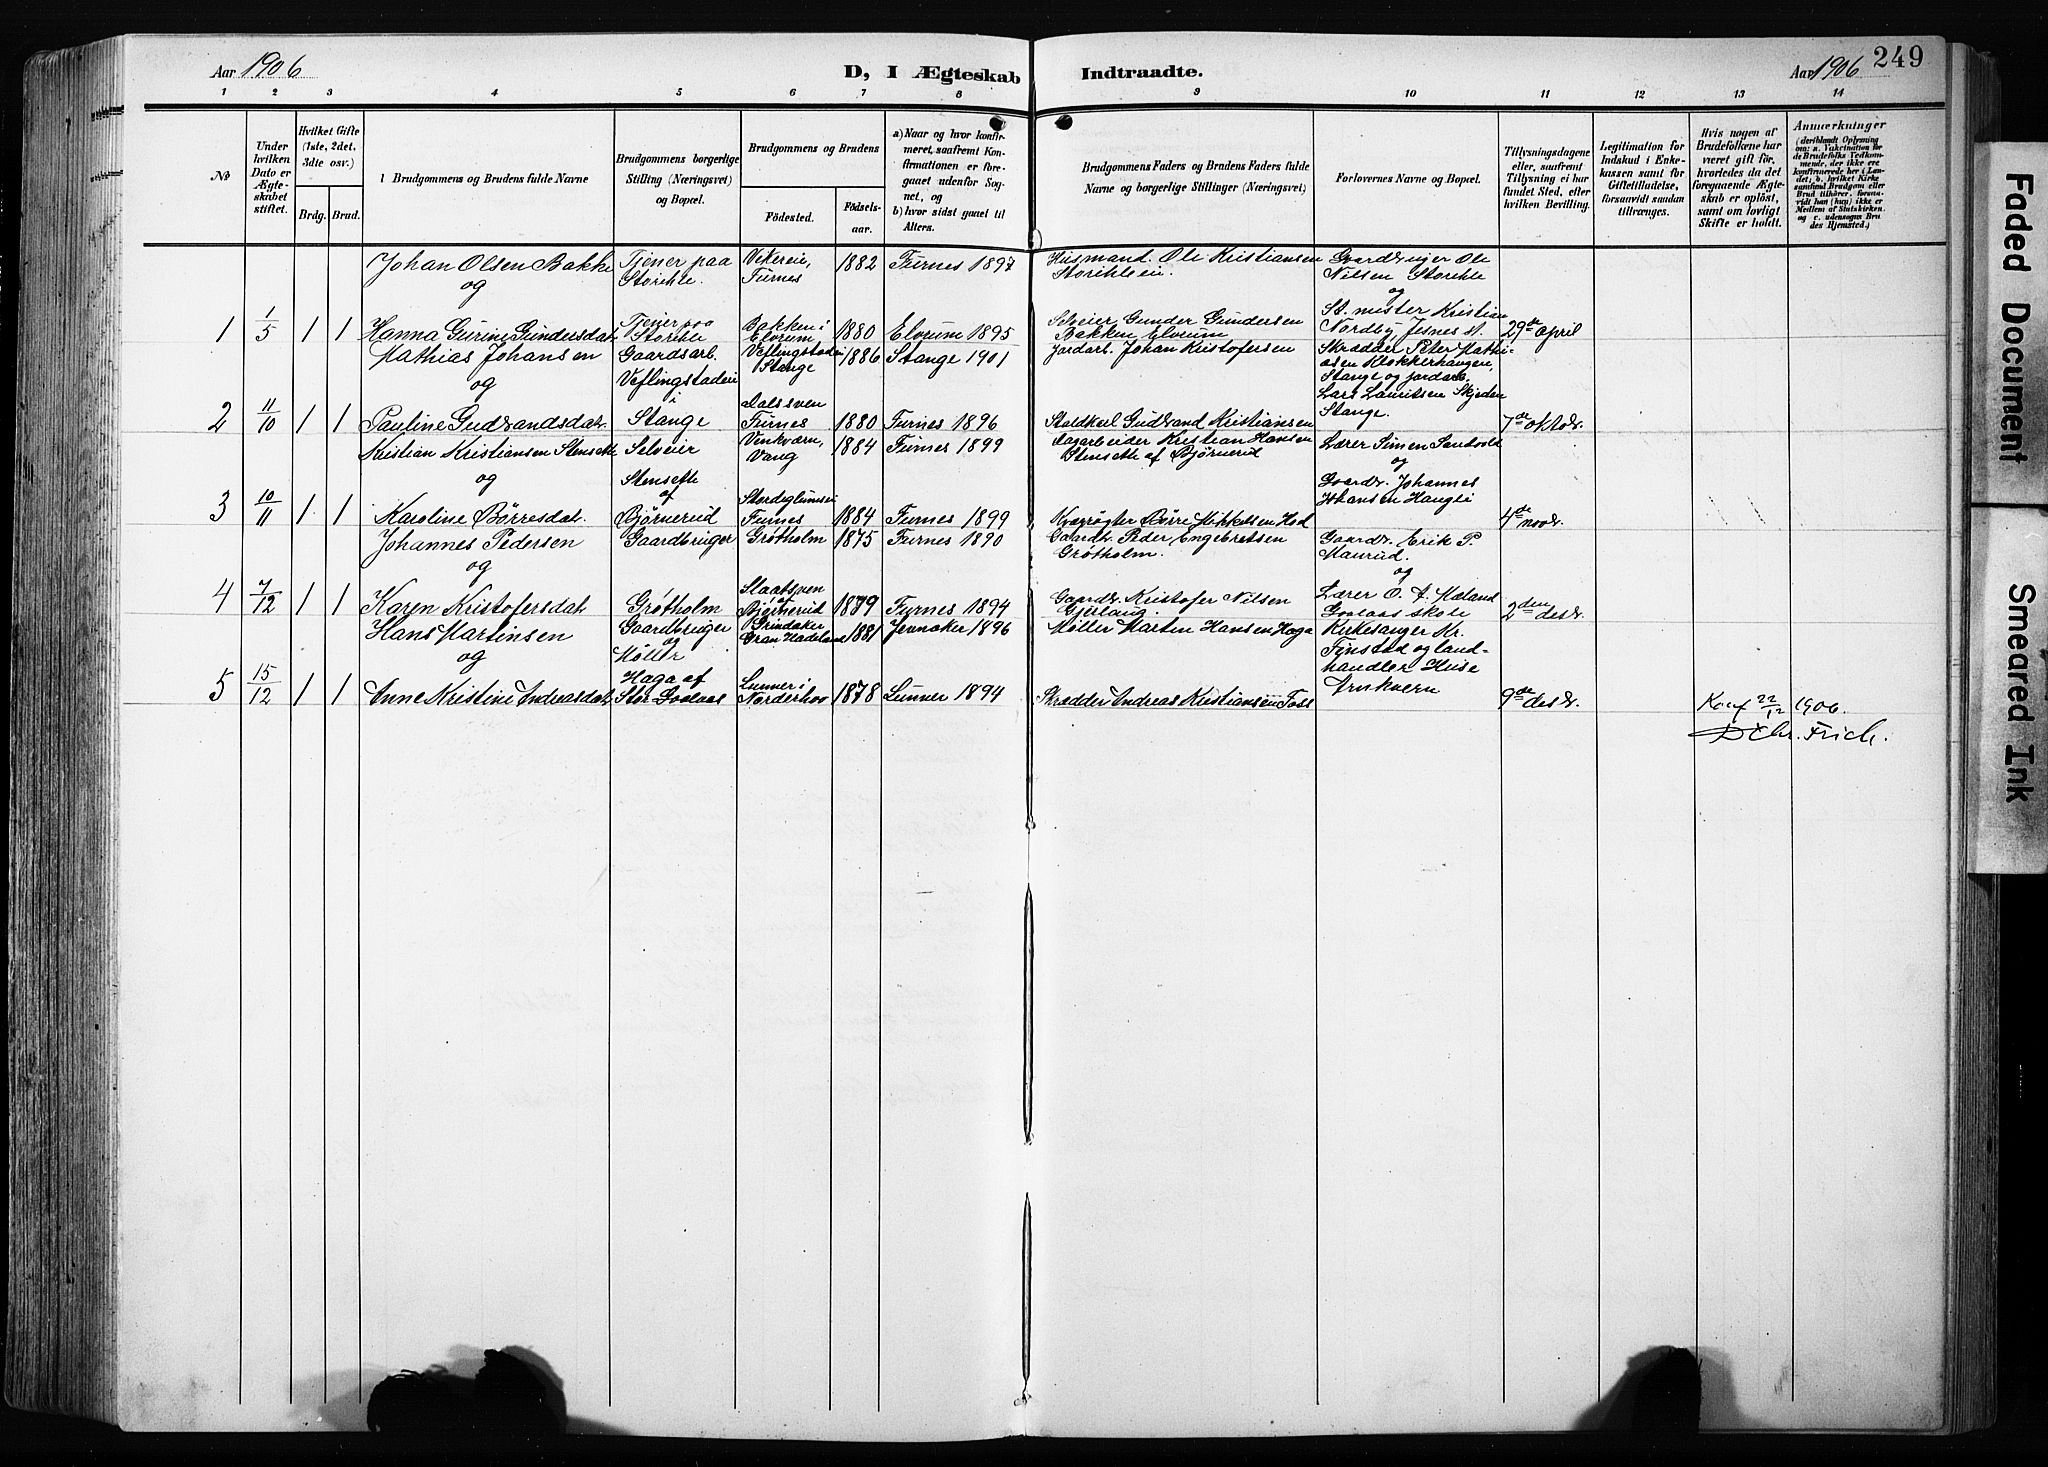 Aar 1906
D, I Ægteskab Indtraadte.
Aar 1906
249
1 2 3 4 5 6 7 8 9 10 11 12 13 14
No
Under hvilken Dato er Ægteskabet stiftet.
Hvilket Gifte (1ste, 2det, 3die osv.)
Brdg. Brud.
Brudgommens og Brudens fulde Navne
Brudgommens borgerlige Stilling (Næringsvei) og Bopæl.
Brudgommens og Brudens
Fødested. Fødselsaar.
a) Naar og hvor konfirmeret, saafremt Konfirmationen er foregaaet udenfor Sognet, og
b) hvor sidst gaaet til Alters.
Brudgommens Faders og Brudens Faders fulde Navne og borgerlige Stillinger (Næringsvei)
Forlovernes Navne og Bopæl.
Tillysningsdagene eller, saafremt Tillysning ei har fundet Sted, efter hvilken Bevilling.
Legitimation for Indskud i Enkekassen samt for Giftetilladelse, forsaavidt saadan tiltrænges.
Hvis nogen af Brudefolkene har været gift før, hvorledes da det foregaaende Ægteskab er opløst, samt om lovligt Skifte er holdt.
Anmærkninger
(deriblandt Oplysning om: a. Vakcination for de Brudefolks Vedkommende, der ikke ere konfirmerede her i Landet; b. hvilket Kirkesamfund Brudgom eller Brud tilhører, forsaavidt han (hun) ikke er Medlem af Statskirken, og c. udensogns Brudes Hjemsted.)
Johan Olsen Bakke
og
1 1/5 1 1 Hanna Gurine Gundersdat.
Tjener paa Storihle.
Tjener paa Storihle
Vikereie, Furnes 1882 Furnes 1897
Bakken i Elvrum 1880 Elvrum 1895
Husmand. Ole Kristiansen Storihleeie.
Selveier Gunder Gundersen Bakken Elvrum
Gaardbruger Ole Nilsen Storihle
og
St. mester Kristian Nordby, Jesnes st.
29de april
Mathias Johansen
og
2 11/10 1 1 Pauline Gudbrandsdat.
Gaardsarb. Veflingstadeie i Stange
Veflingstadeie Stange 1886 Stange 1901
Furnes 1880 Furnes 1896
Jordarb. Johan Kristofersen
Staldkarl Gudbrand Kristiansen
Skrædder Peter Mathisen Klokkerhaugen, Stange og jordarb. Lars Lauritsen Skjeden Stange.
7de oktbr.
Kristian Kristiansen Stensette
og
3 10/11 1 1 Karoline Børresdat.
Selveier Stensette af Bjørnerud
Vinkværn, Vang 1884 Furnes 1899
Furnes 1884 Furnes 1899
Dagarbeider Kristian Hansen Stensette af Bjørnerud
Kvægrøgter Børre Mikkelsen
Lærer Simen Sandvold
og
Gaardbr. Johannes Johansen Haugli
4de novbr.
Johannes Pedersen
og
4 7/12 1 1 Karen Kristofersdat.
Gaardbruger
Grøtholm
Grøtholm 1875 Furnes 1890
Bjørnerud 1879 Furnes 1894
Gaardbr. Peder Engebretsen Grøtholm.
Gaardbr. Kristofer Nilsen
Gaardbr. Erik P. Maurud.
og
Lærer O. A. Mæland skole
2den desbr.
Hans Martinsen
og
5 15/12 1 1 Anne Kristine Andreasdat.
Gaardbruger og Møller Haga af
Grindaker Gran Hadeland 1881 Jevnaker 1896
Lunner i Norderhov 1878 Lunner 1894
Møller Martin Hansen Haga
Skrædder Andreas Kristiansen Foss
Kirkesanger Kr. Finstad og landhandler
9de desbr.
Konf 22/12 1906.
D Chr. Frich.
Faded Document
Smeared Ink